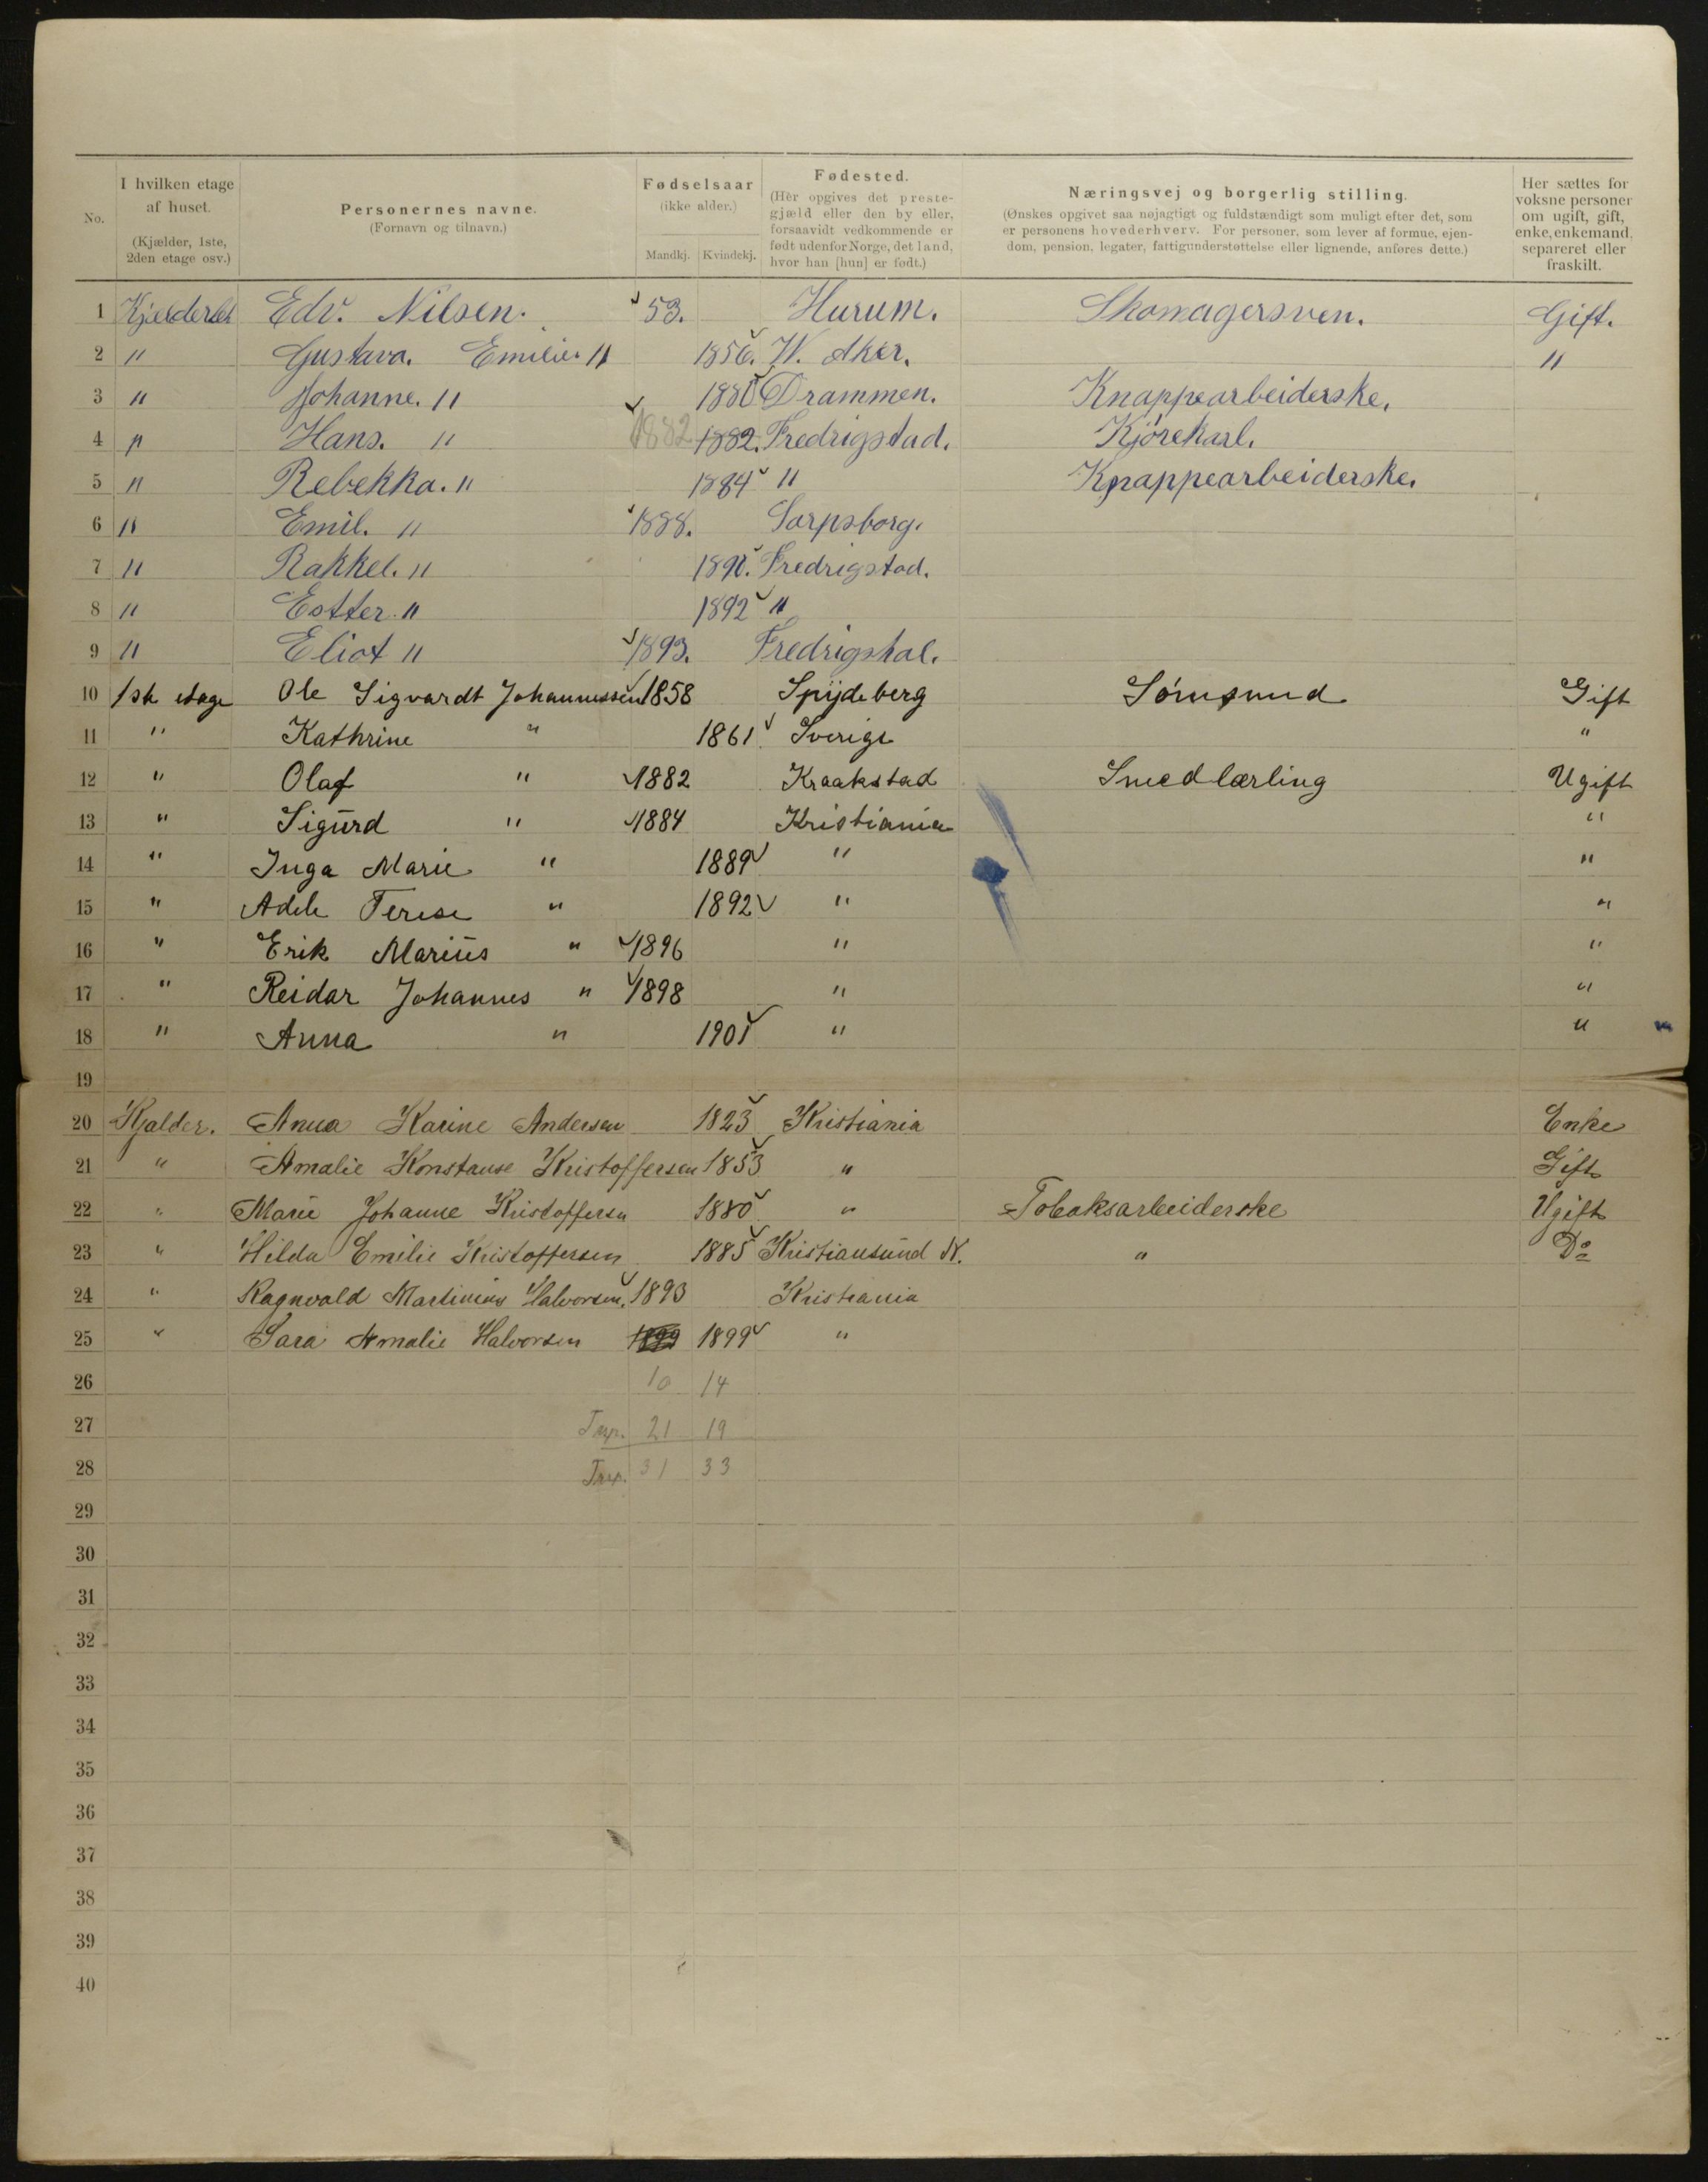 No.
I hvilken etage af huset. (Kjælder, 1ste, 2den etage osv.)
Personernes navne. (Fornavn og tilnavn.)
Fødselsaar (ikke alder.) Mandkj. Kvindekj.
Fødested. (Her opgives det prestegjæld eller den by eller, forsaavidt vedkommende er født udenfor Norge, det land, hvor han [hun] er født.)
Næringsvej og borgerlig stilling. (Ønskes opgivet saa nøjagtigt og fuldstændigt som muligt efter det, som er personens hovederhverv. For personer, som lever af formue, ejendom, pension, legater, fattigunderstøttelse eller lignende, anføres dette.)
Her sættes for voksne personer om ugift, gift, enke, enkemand, separeret eller fraskilt.
1 Edv. Nilsen. 53. Hurum. Skomagersven. Gift.
2 " Gustava. Emilie " 1856. W. Aker. "
3 " Johanne. " 1880 Drammen. Knappearbeiderske.
4 " Hans. " 1882 1882. Fredrigstad. Kjørekarl.
5 " Rebekka. " 1884 " Knappearbeiderske.
6 " Emil. " 1888. Sarpsborg.
7 " Rakkel. " 1890. Fredrigstad.
8 " Estter. " 1892 "
9 " Eliot " 1893. Fredrigshal.
10 1ste etage Ole Sigvardt Johannessen 1858 Spydeberg Gift
11 " Kathrine " 1861 Sverige "
12 " Olaf " 1882 Kraakstad Smedlærling Ugift
13 " Sigurd " 1884 Kristiania "
14 " Inga Marie " 1889 " "
15 " Adele Terese " 1892 " "
16 " Erik Marius " 1896 " "
17 " Reidar Johannes " 1898 " "
18 " Anna " 1901 " "
19
20 Kjælder. Anna Karine Andersen 1823 Kristiania Enke
21 " Amalie Konstanse Kristoffersen 1853 " Gift
22 " Marie Johanne Kristoffersen 1880 " Tobaksarbeiderske Ugift
23 " Hilda Emilie Kristoffersen 1885 Kristiansund N. " Do
24 " Ragnvald Martinius Halvorsen. 1893 Kristiania
25 " Sara Amalie Halvorsen 1899 1899 "
26 10 14
27 21 19
28 31 33
29
30
31
32
33
34
35
36
37
38
39
40